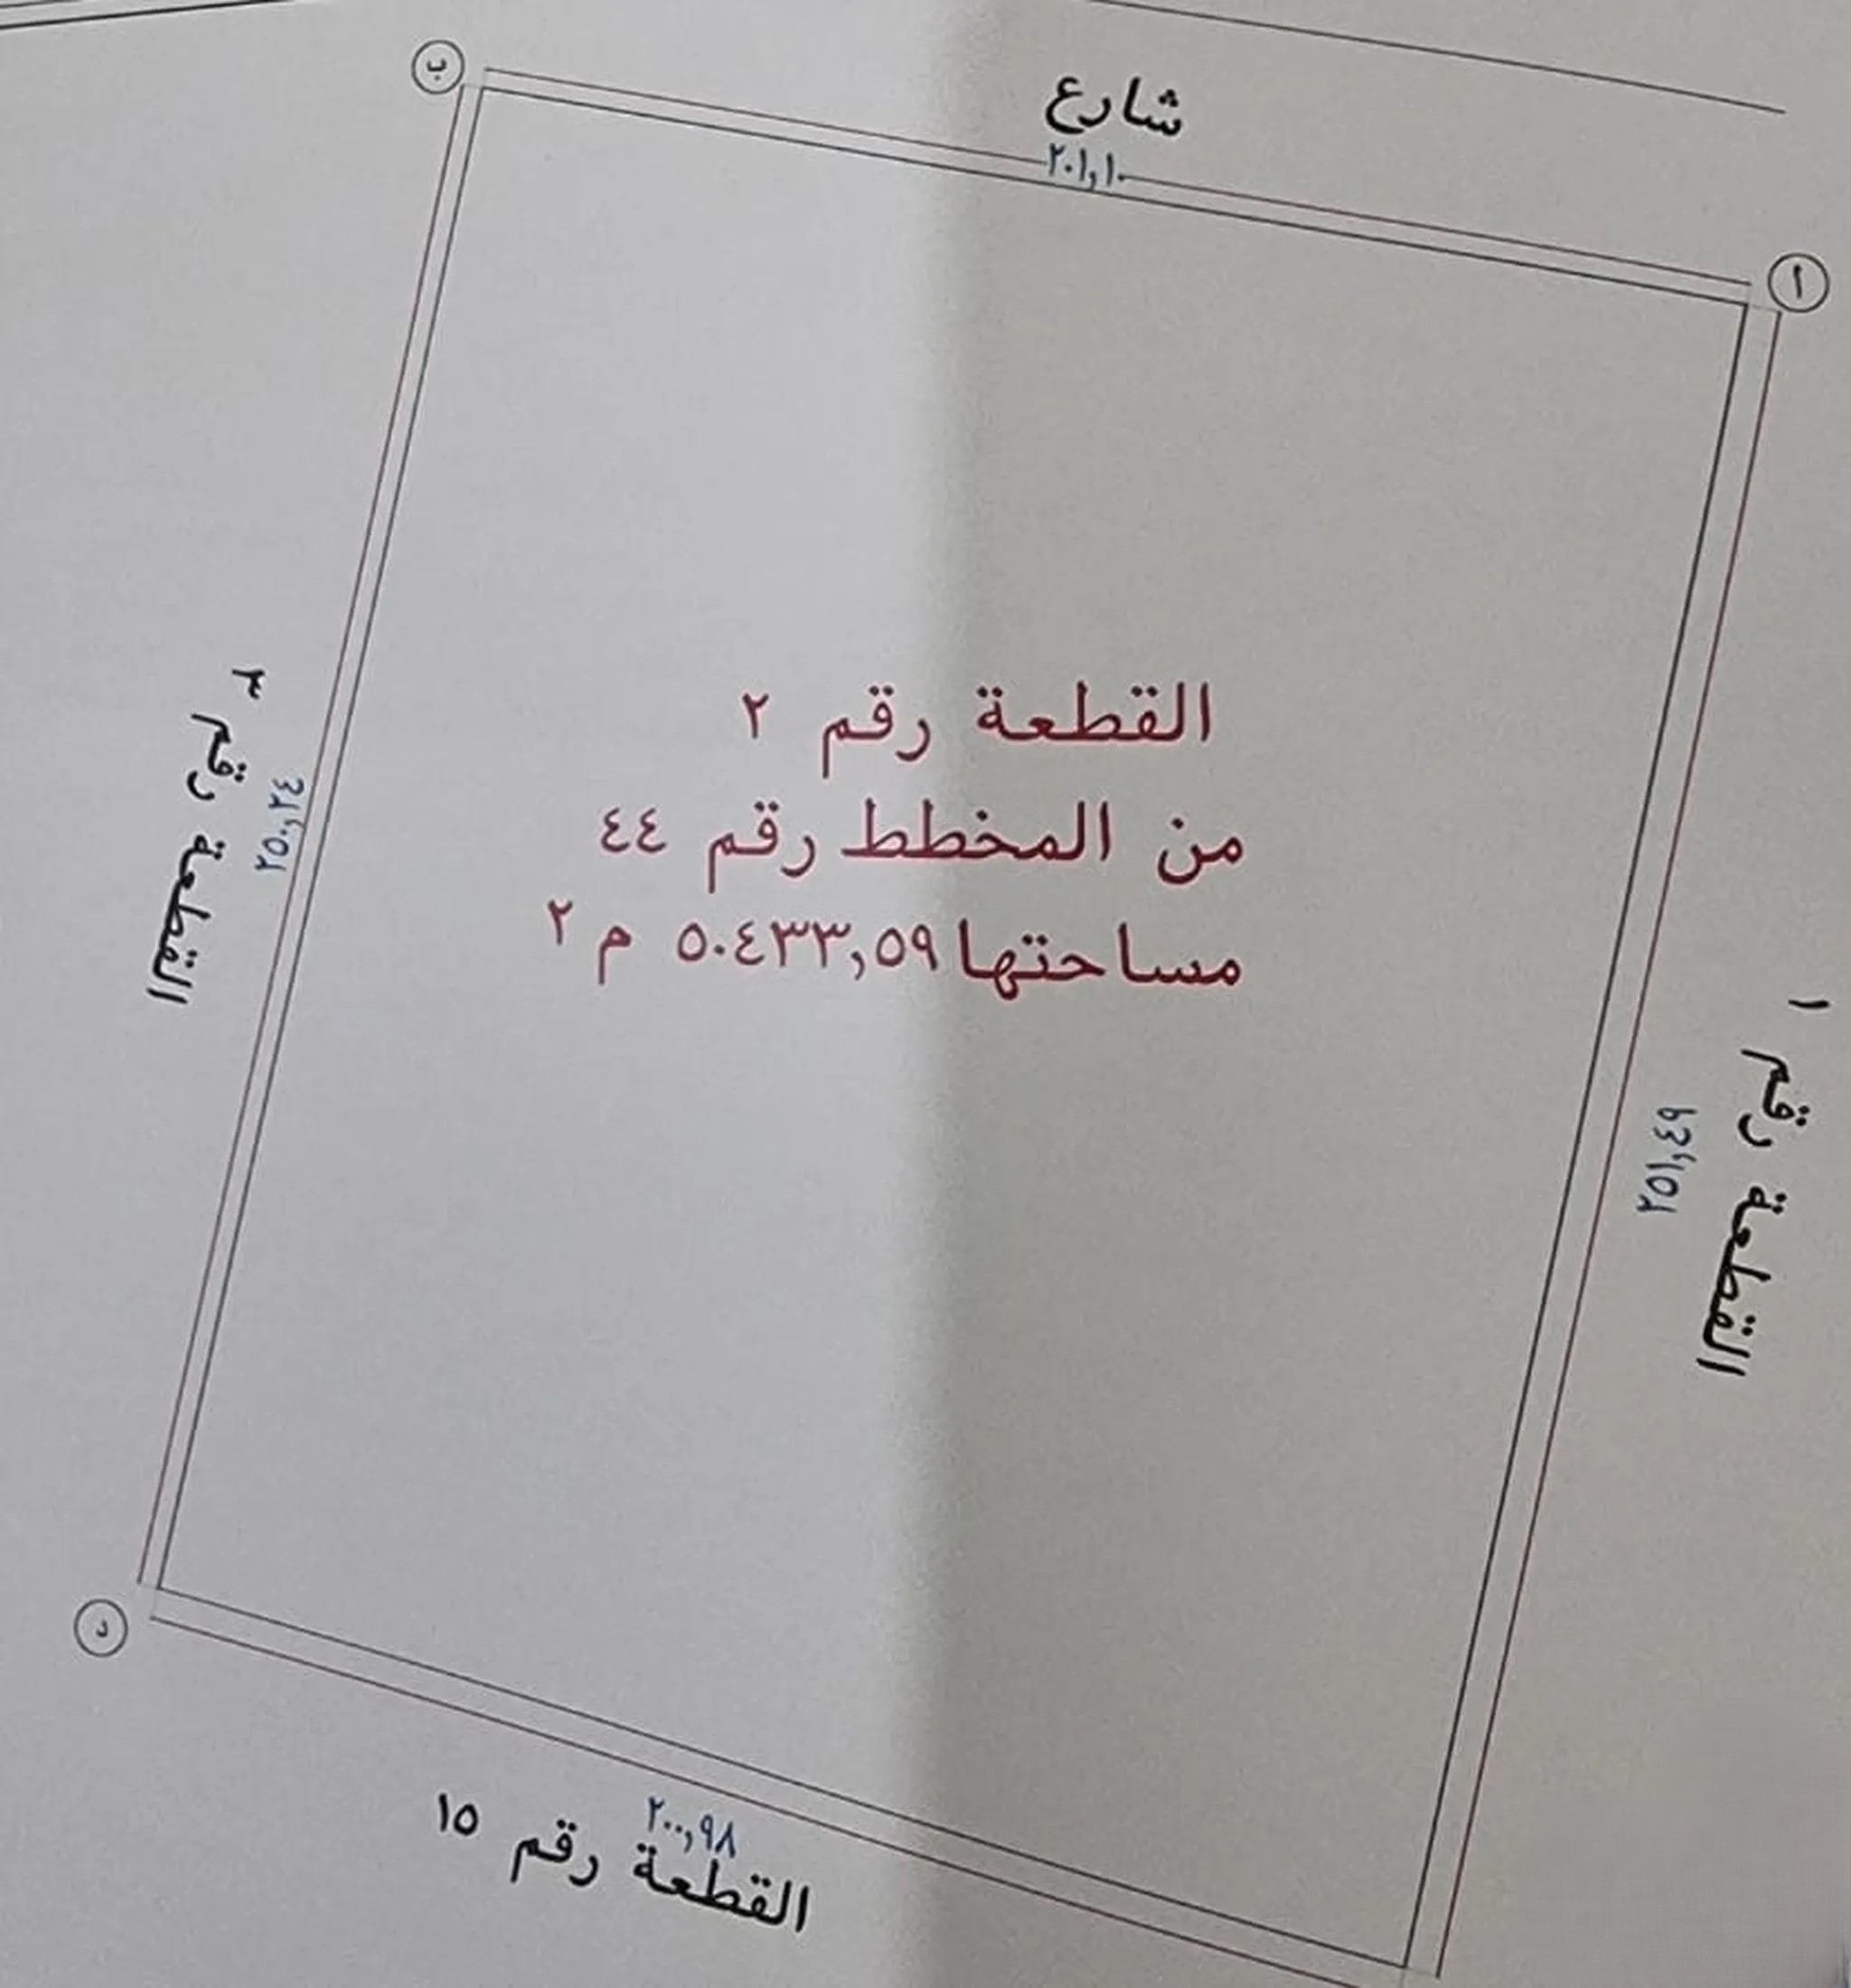 ب
شارع
٢٠١,١٠
ا
القطعة رقم ٢
من المخطط رقم ٤٤
مساحتها ٥٠٤٣٣,٥٩ م٢
القطعة رقم ٣
٢٥٠,٤٢
القطعة رقم ١
٢٥١,٤٩
د
٢٠٠,٩٨
القطعة رقم ١٥